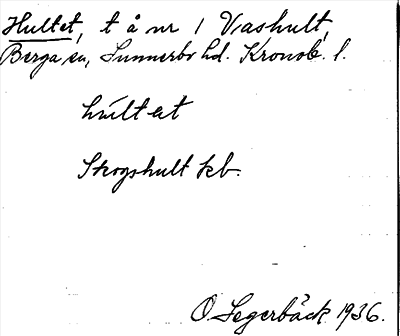 Hultet, t å nr 1 Viashult,
Berga sn, Sunnerbo hd. Kronob. l.
hultet
Skogshult kb.
O. Segerbäck 1936.